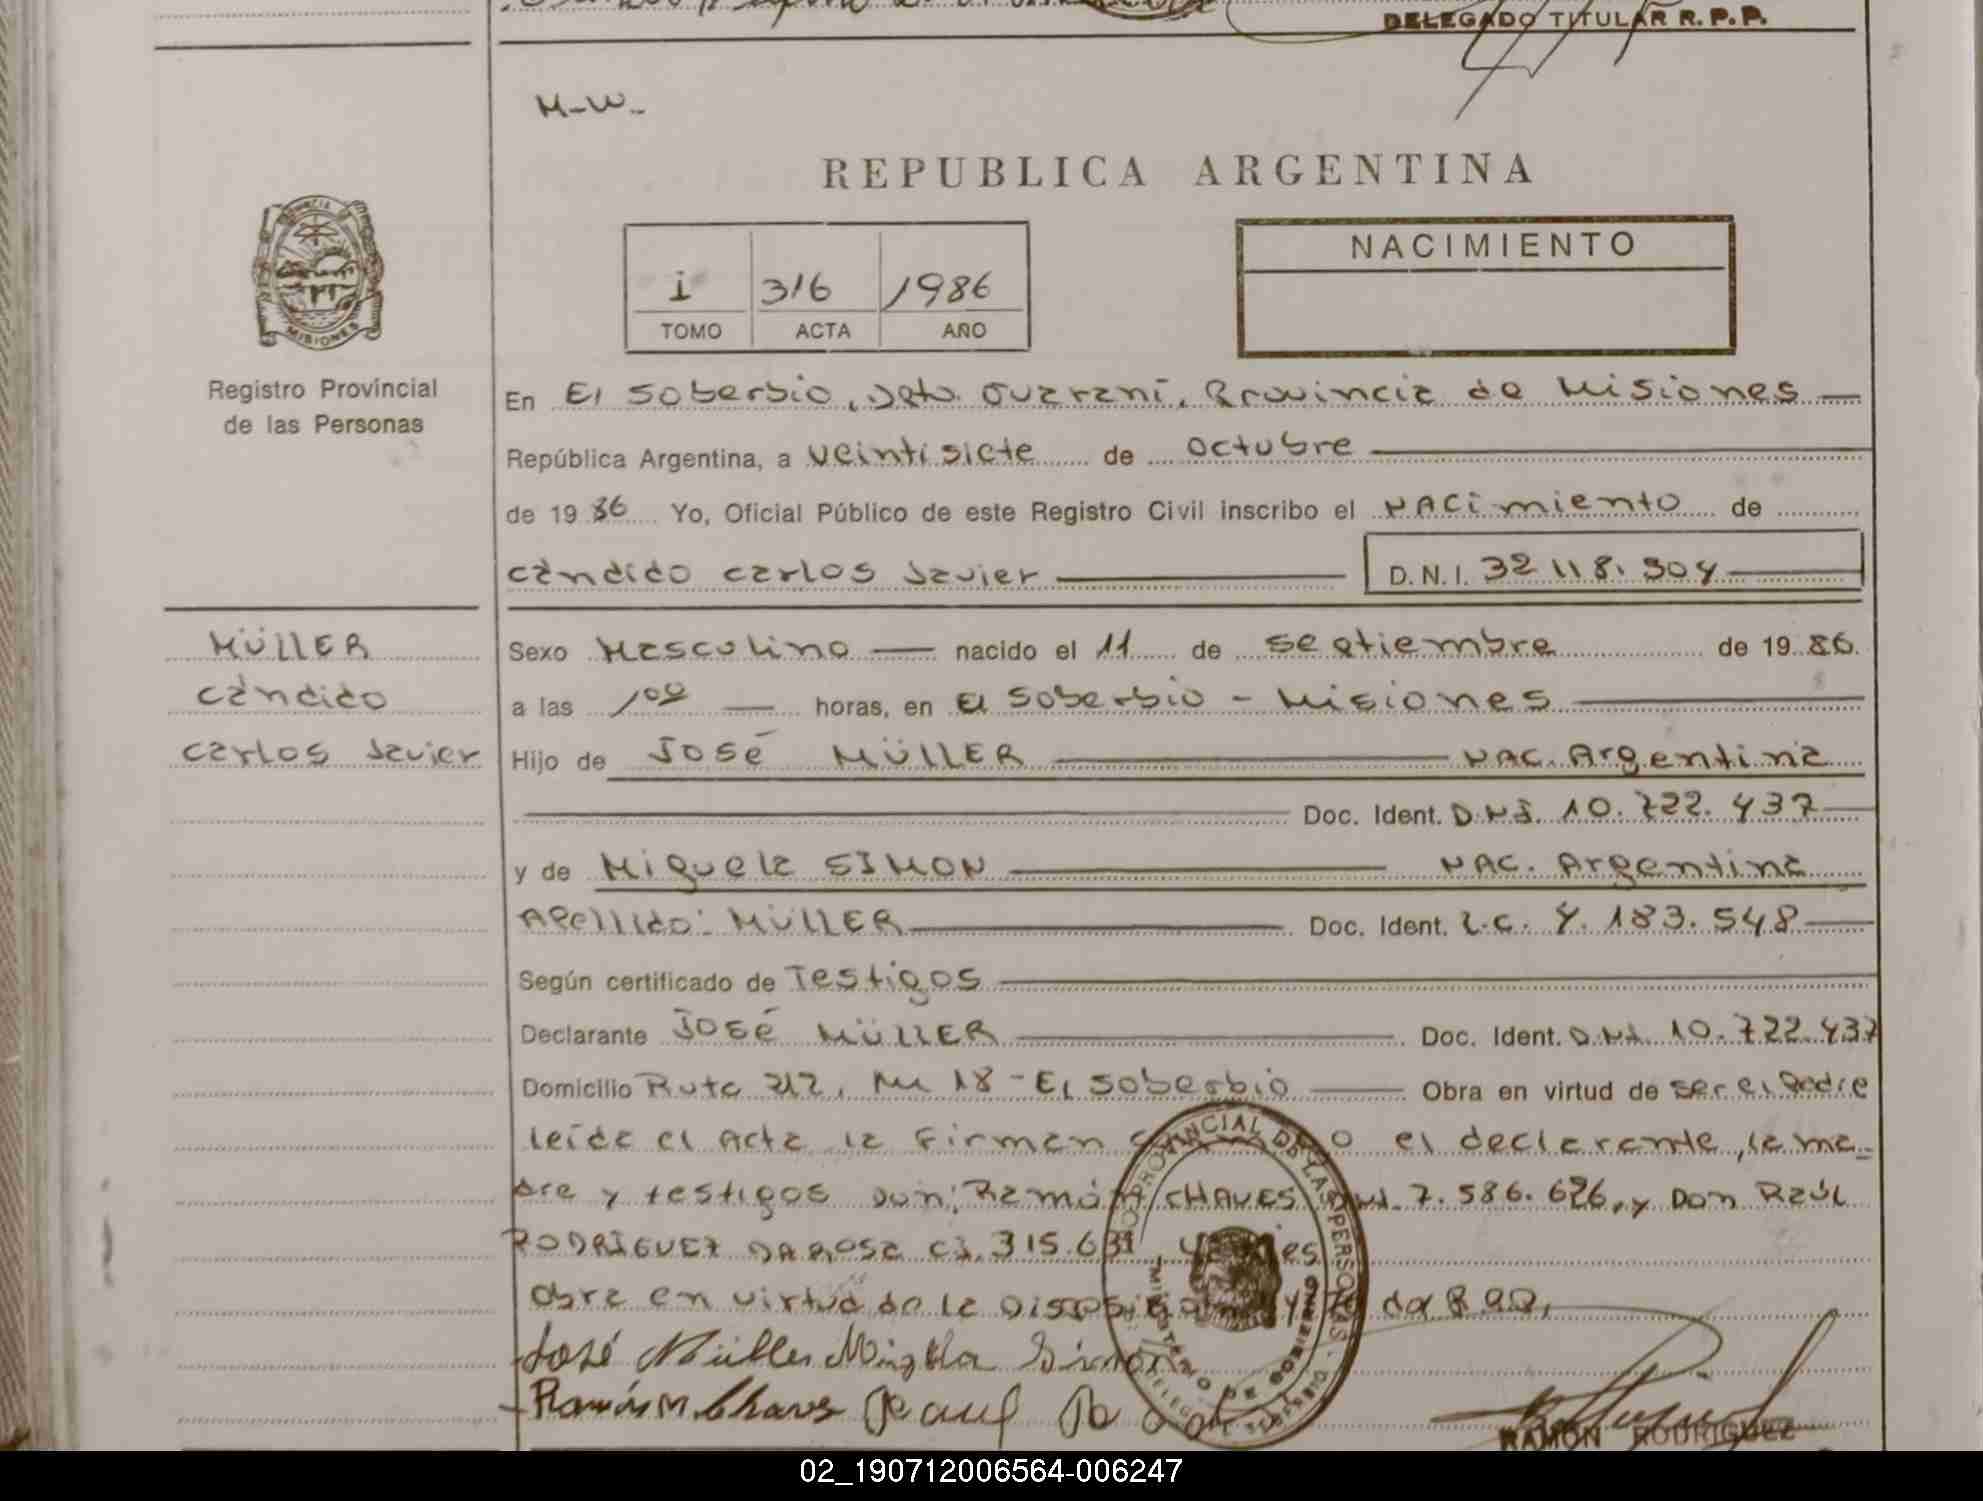 DELEGADO TITULAR R.P.P.
M-W-
REPUBLICA ARGENTINA
PROVINCIA DE MISIONES
I 316 1986
TOMO ACTA AÑO
NACIMIENTO
Registro Provincial
de las Personas
En El Soberbio, Dpto. Guaraní, Provincia de Misiones
República Argentina, a veintisiete de octubre
de 1986 Yo, Oficial Público de este Registro Civil inscribo el NACimiento de
cándido carlos Javier D.N.I. 32 118.504
MÜLLER
cándido
carlos Javier
Sexo Masculino nacido el 11 de septiembre de 1986.
a las 1°° horas, en El Soberbio - Misiones
Hijo de José MÜLLER NAC. Argentina
Doc. Ident. D.N.I. 10.722.437
y de Miguela SIMON NAC. Argentina
Apellido: MÜLLER Doc. Ident. L.C. 4.183.548
Según certificado de Testigos
Declarante José MÜLLER Doc. Ident. D.N.I. 10.722.437
Domicilio Ruta 212, Km 18 - El Soberbio Obra en virtud de ser el padre
leída el Acta la Firman o el declarante, la ma_
dre y testigos Don; Ramón CHAVES 7.586.626, y Don Raúl
RODRIGUEZ DAROSA C.I. 315.631
obra en virtud de la Disposición
José Müller Miguela Simon
Ramón M. Chaves
PROVINCIAL DE LAS PERSONAS
MINISTERIO DE GOBIERNO
RAMON RODRIGUEZ
02_190712006564-006247